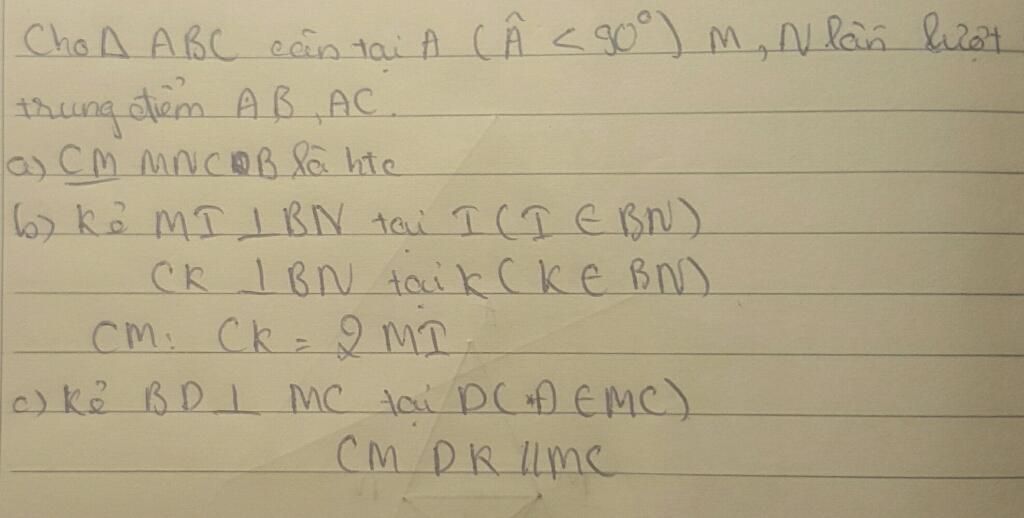 Cho Δ ABC cân tại A (Â < 90°) M, N lần lượt
trung điểm AB, AC.
a) CM MNCB là htc
b) Kẻ MI ⊥ BN tại I (I ∈ BN)
CK ⊥ BN tại K (K ∈ BN)
CM: CK = 2 MI
c) Kẻ BD ⊥ MC tại D (D ∈ MC)
CM DK // MC